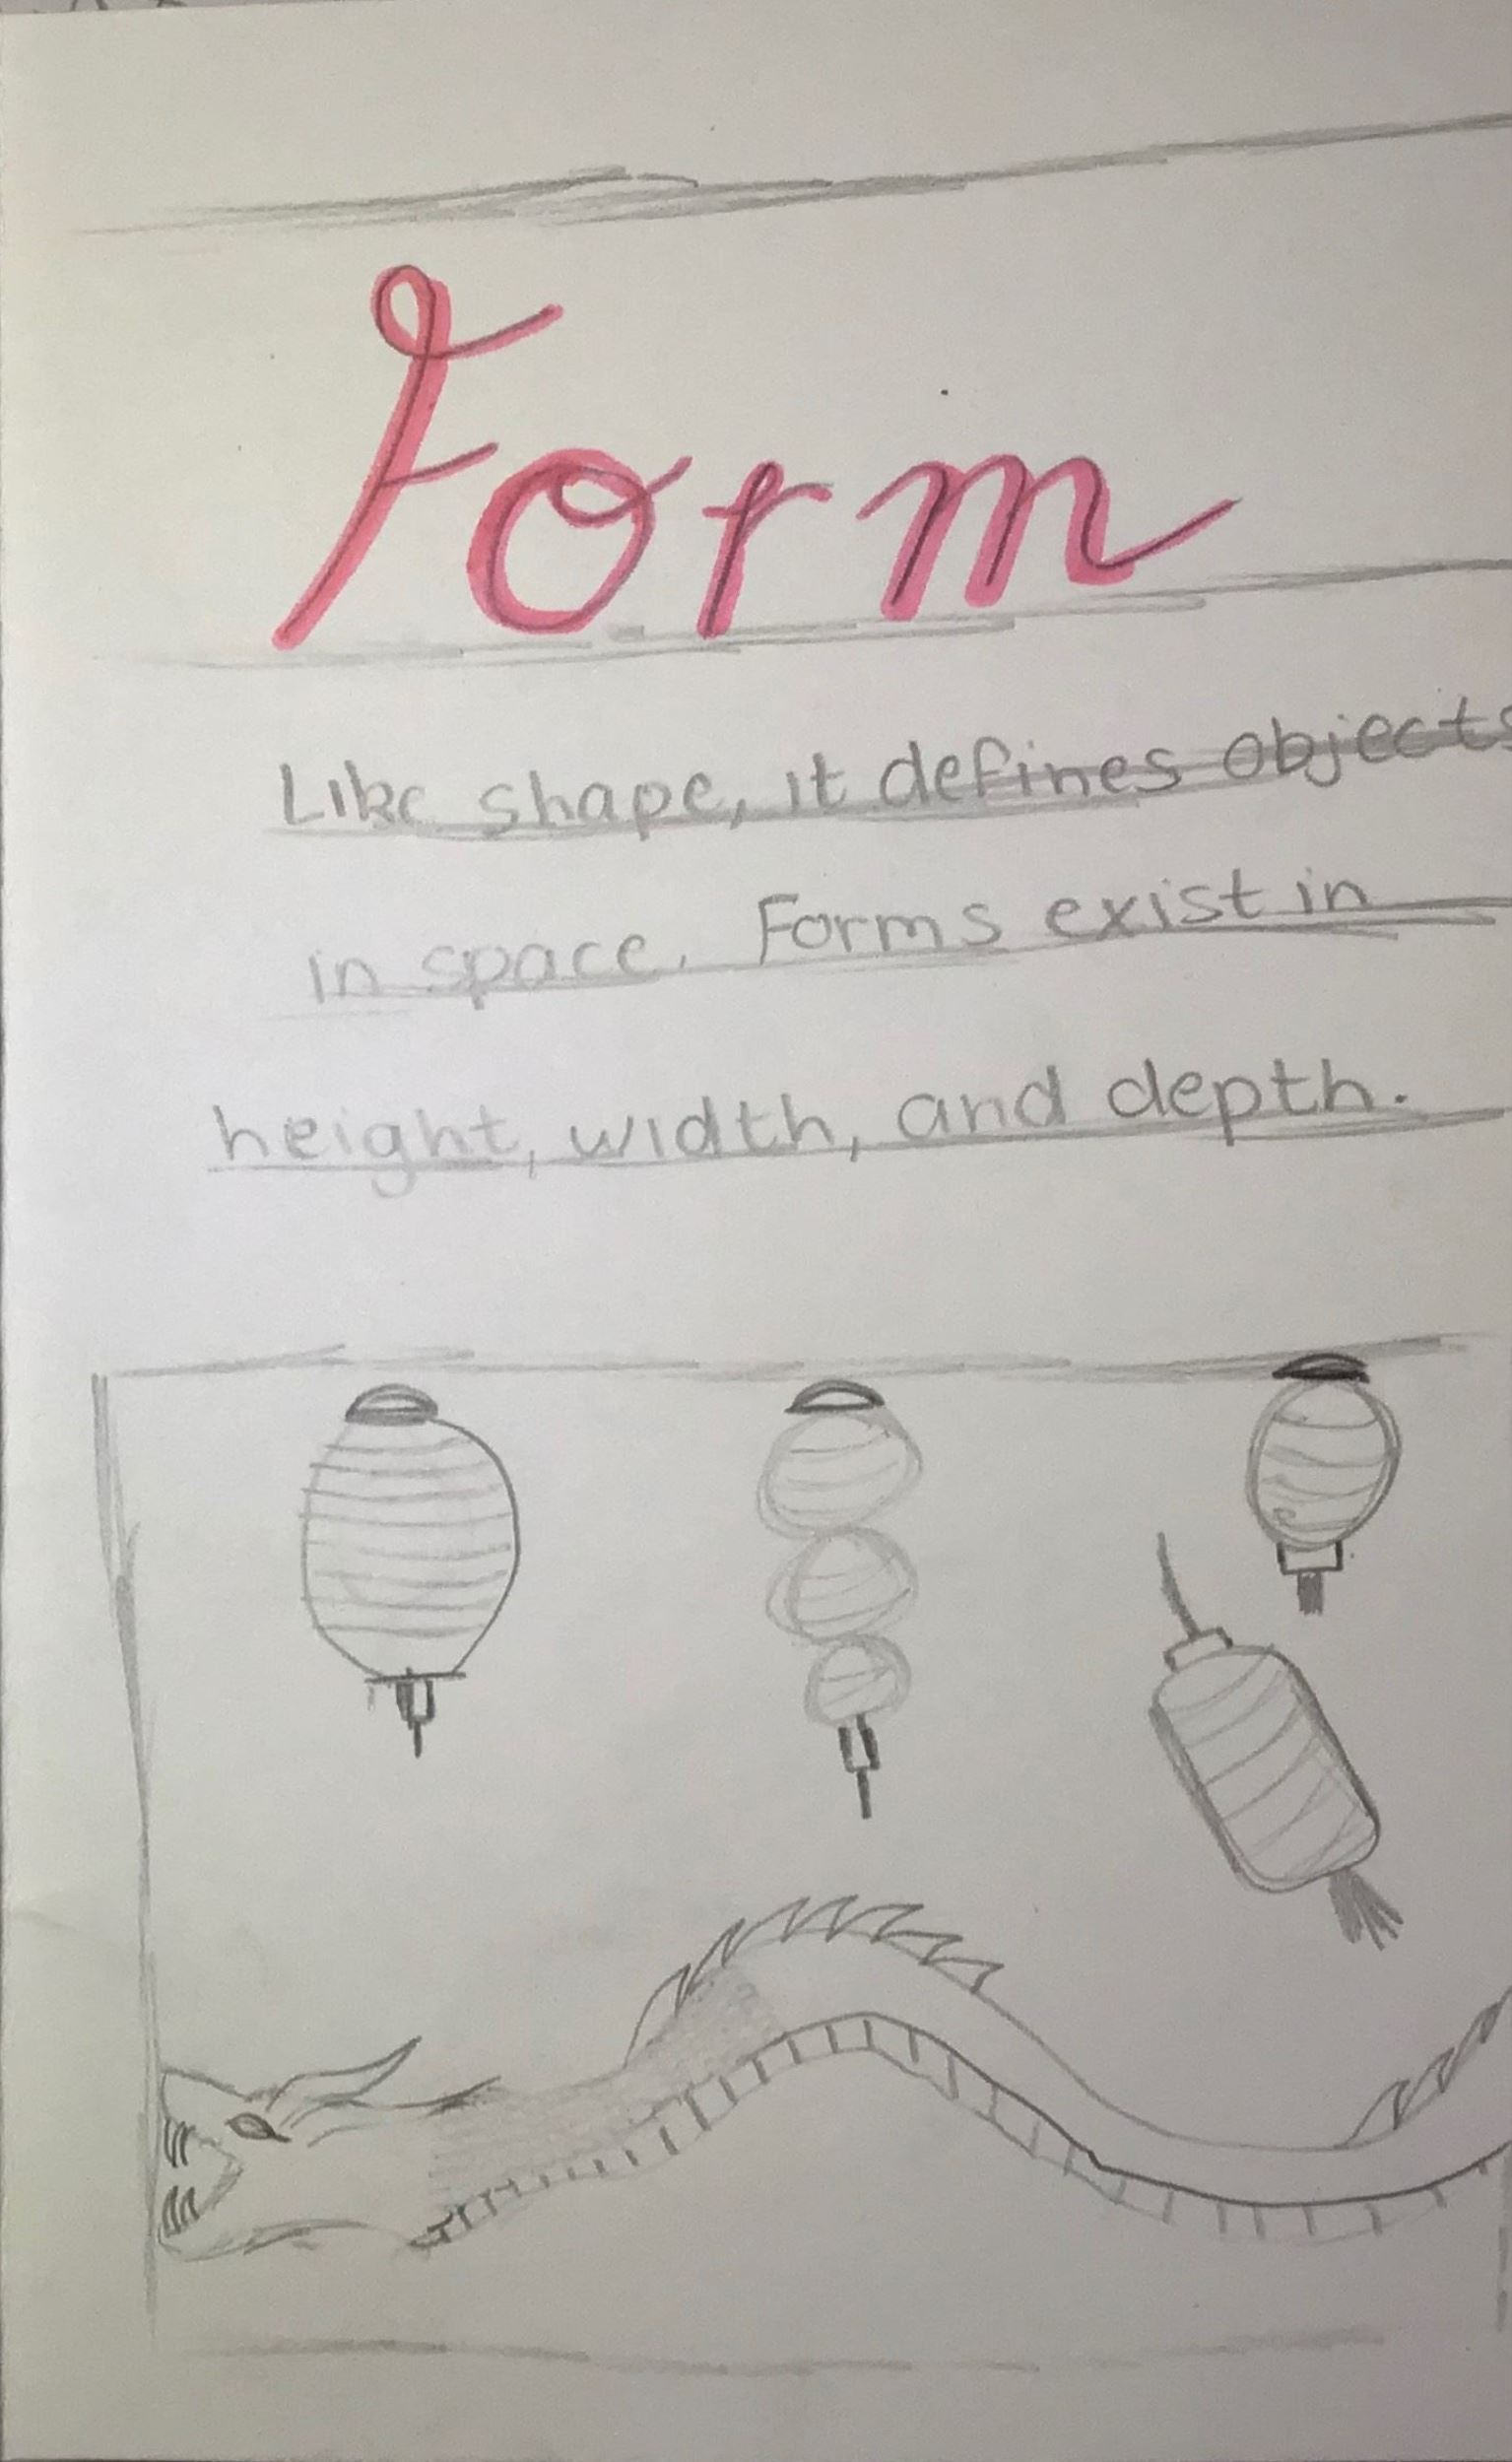 Form
Like shape, it defines objects
in space. Forms exist in
height, width, and depth.